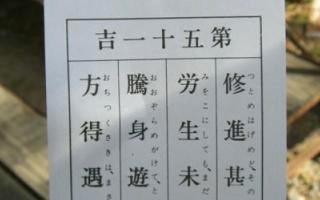 第五十一吉
修進甚
つとめはげめど、その
労生未
みをこにしても、まだ
騰身遊
おおぞらめがけて、と
方得遇
おちつくさきは、まさ